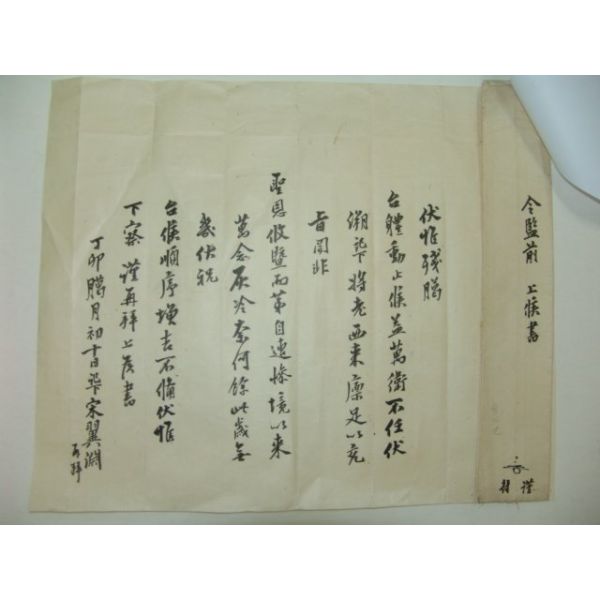 令監前 上候書
謹封
伏惟殘臘
台體動止候益萬衛不任伏
溯 將老西來廩足以充
旨聞非
聖恩攸曁而第自遭慘境以來
萬念灰冷奈何餘此歲無
幾伏祝
台候順序增吉不備伏惟
下察 謹再拜上候書
丁卯臘月初十日 宋翼淵
再拜